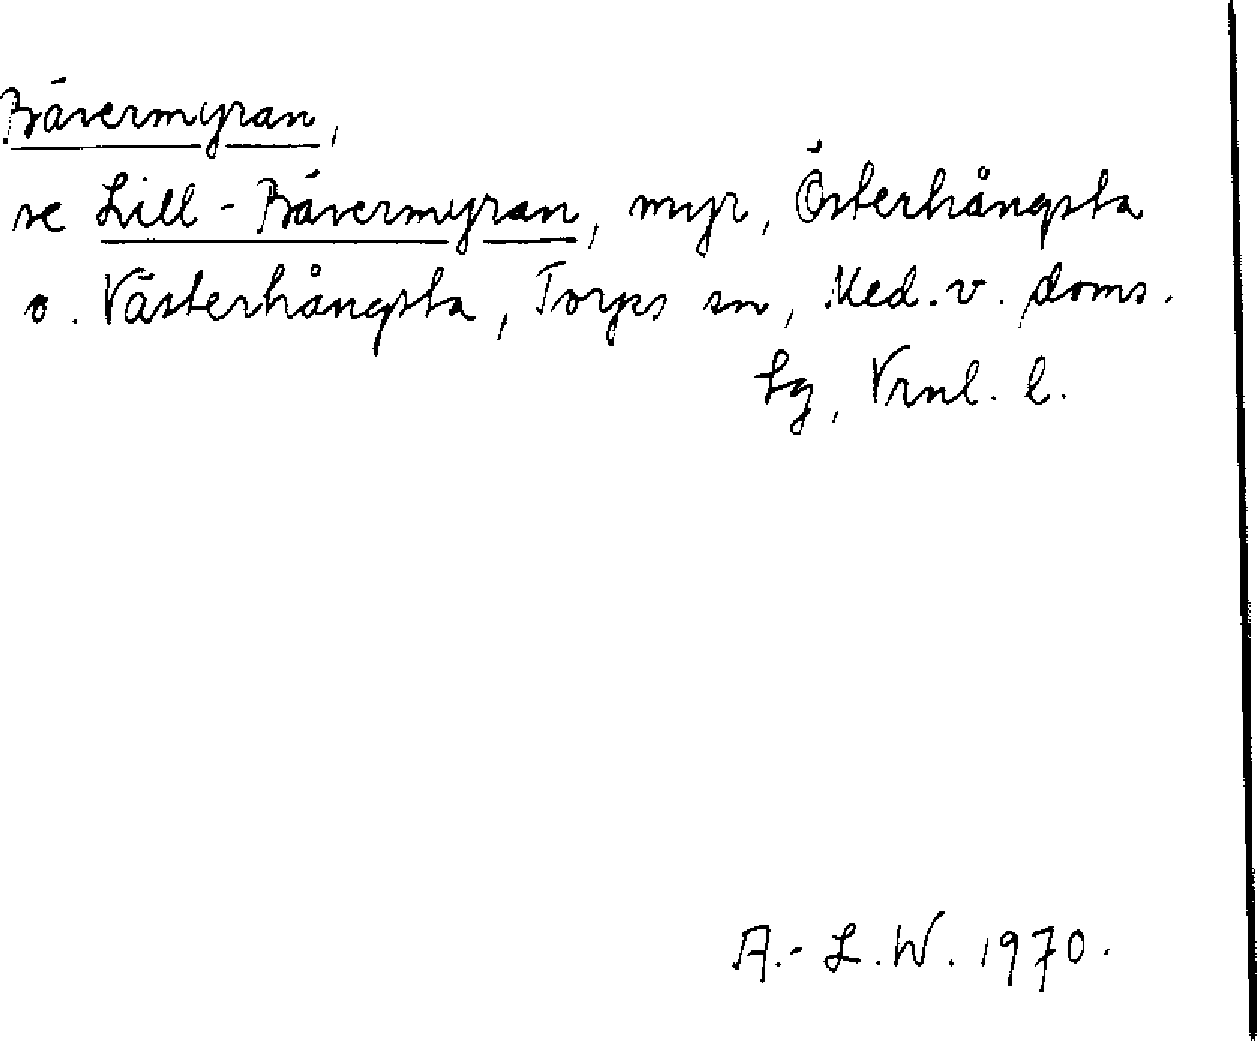 Bävermyran,
se Lill-Bävermyran, myr, Österhångsta
o. Västerhångsta, Torps sn, Med. v. doms.
lg, Vrnl. l.
A.-L.W. 1970.